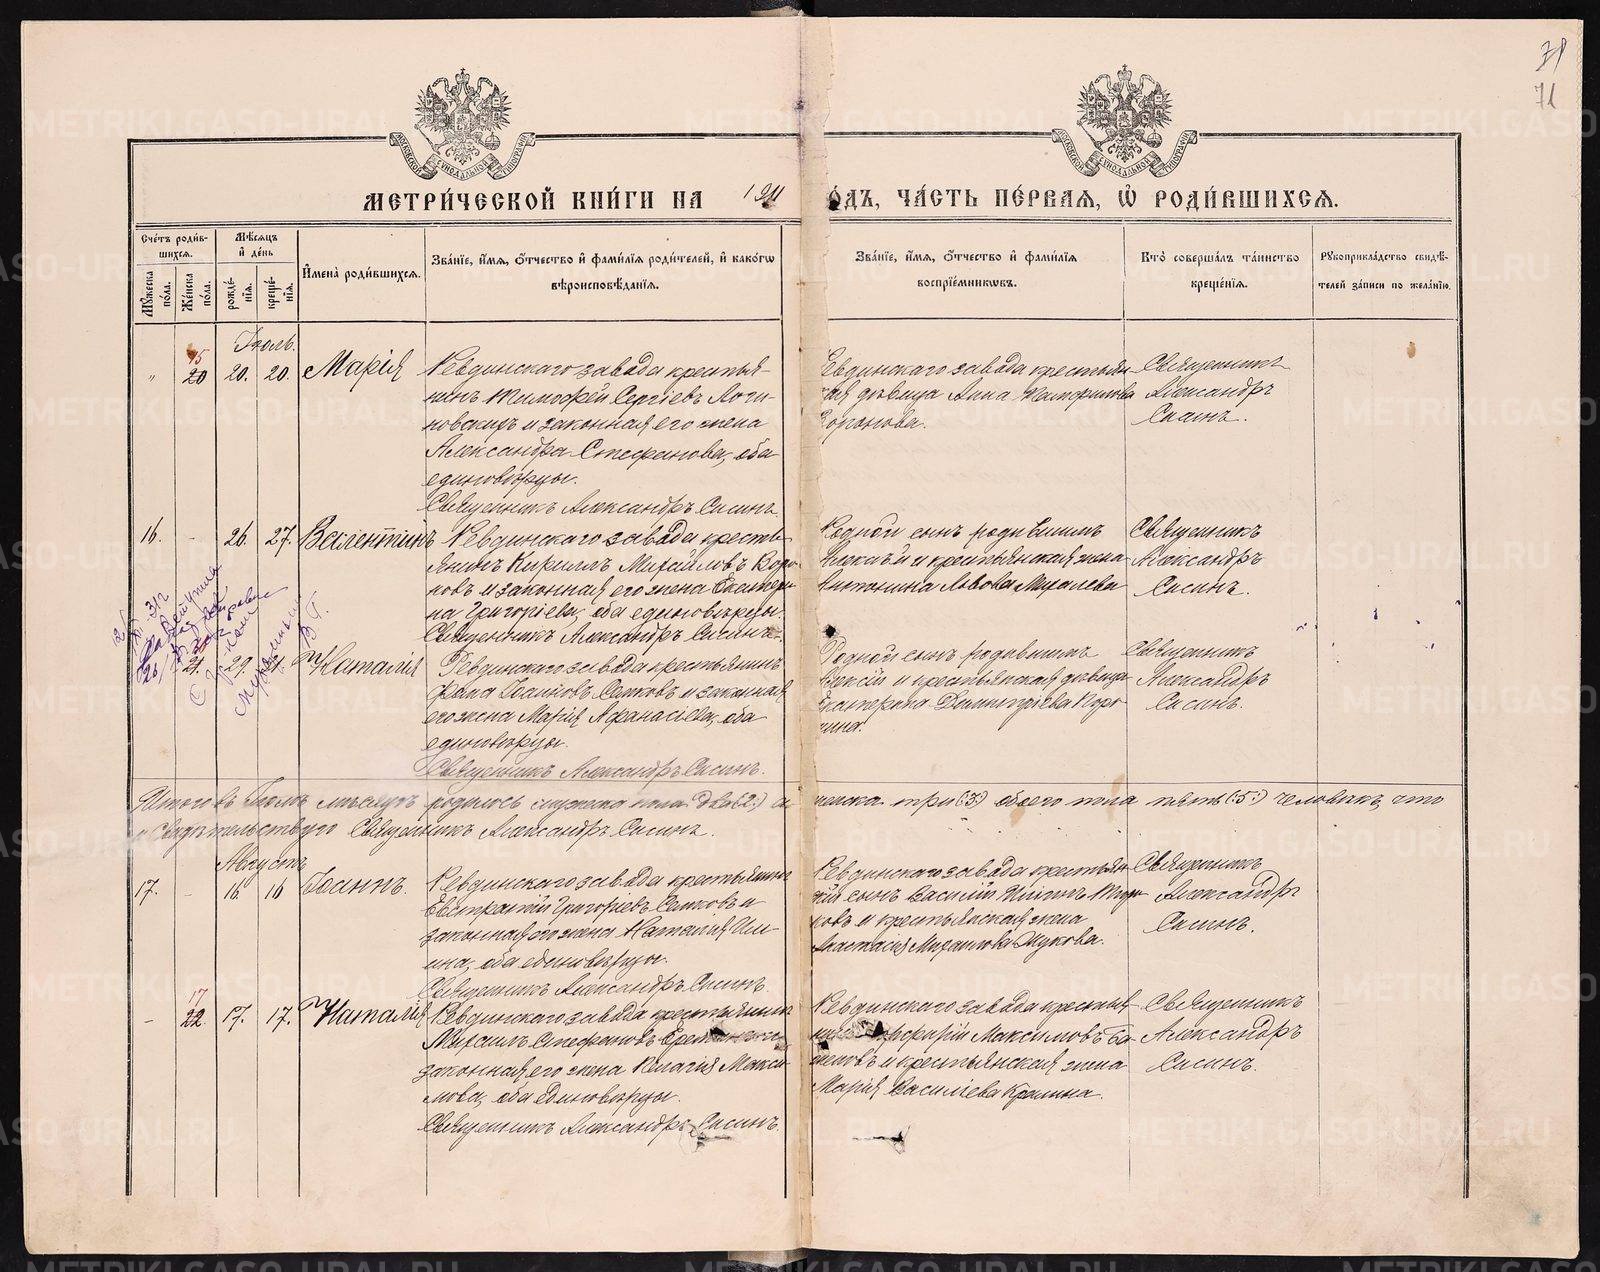 71
МЕТРИ́ЧЕСКОЙ КНИ́ГИ НА 1911 ГО́ДЪ, ЧА́СТЬ ПЕ́РВАЯ, Ѽ РОДИ́ВШИХСЯ.
Сче́тъ роди́в-
шихся.
Мѣ́сяцъ
и҆ де́нь
Му́жеска по́ла.
Же́нска по́ла.
рожде́-
нїя.
креще́-
нїя.
И҆мена̀ роди́вшихся.
Зва́нїе, и҆́мя, ѻ҆́тчество и҆ фами́лїя роди́телей, и҆ како́гѡ
вѣроисповѣ́данїя.
Зва́нїе, и҆́мя, ѻ҆́тчество и҆ фами́лїя
воспрїе́мникѡвъ.
Кто̀ соверша́лъ та́инство
креще́нїя.
Рꙋкоприкла́дство свидѣ́-
телей за́писи по жела́нїю.
Іюль.
15
" 20 20. 20. Марія
Ревдинскаго завода крестья-
нинъ Тимофей Сергіевъ Логи-
новскихъ и законная его жена
Александра Стефанова, оба
единовѣрцы.
Священникъ Александръ Сисинъ
Ревдинскаго завода крестьян-
ская дѣвица Анна
Воронова.
Священникъ
Александръ
Сисинъ.
16. - 26. 27. Валентинъ
Ревдинскаго завода кресть-
янинъ Кириллъ Михайловъ Воро-
новъ и законная его жена Екатери-
на Григоріева, оба единовѣрцы.
Священникъ Александръ Сисинъ.
Родной сынъ родившимъ
Алексѣй и крестьянская жена
Антонина Львова Мигалева
Священникъ
Александръ
Сисинъ.
21. 29. Наталія
Ревдинскаго завода крестьянинъ
Ѳома Іоанновъ Сатковъ и законная
его жена Марія Афанасіева, оба
единовѣрцы.
Священникъ Александръ Сисинъ.
Родной сынъ родившимъ
Алексій и крестьянская дѣвица
Екатерина Димитріева
Священникъ
Александръ
Сисинъ.
Итого въ Іюлѣ мѣсяцѣ родилось мужеска пола два (2:) а женска три (:3:) обоего пола пять (:5:) человѣкъ, что
и свидѣтельствую Священникъ Александръ Сисинъ.
Августъ
17. - 16. 16 Іоаннъ.
Ревдинскаго завода крестьянинъ
Евстратій Григоріевъ Сатковъ и
законная его жена Наталія Иль-
ина, оба единовѣрцы.
Священникъ Александръ Сисинъ.
Ревдинскаго завода крестьян-
скій сынъ Василій
и крестьянская жена
Анастасія Михаилова Жукова.
Священникъ
Александръ
Сисинъ.
17
- 22. 17. 17. Наталія
Ревдинскаго завода крестьянинъ
Михаилъ Стефановъ
законная его жена Пелагія Макси-
мова, оба единовѣрцы.
Священникъ Александръ Сисинъ.
Ревдинскаго завода крестья-
нинъ Порфирій Максимовъ
и крестьянская жена
Марія Василіева
Священникъ
Александръ
Сисинъ.
METRIKI.GASO-URAL.RU